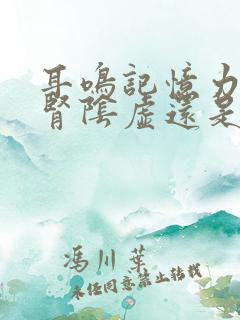 耳鳴記憶力
腎陰虛還是
馮川葉
未經同意禁止轉載